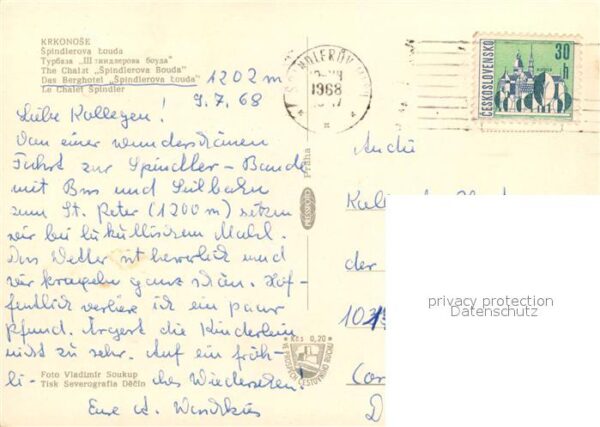 KRKONOŠE
Špindlerova bouda
Турбаза „Шпиндлерова боуда"
The Chalet „Špindlerova Bouda"
Das Berghotel „Špindlerova bouda" 1202 m
Le Chalet Spindler
9.7.68
Liebe Kollegen!
Von einer wunderschönen
Fahrt zur Spindler-Baude
mit Bus und Seilbahn
zum St. Peter (1200 m) sitzen
wir bei lukullischem Mahl.
Das Wetter ist herrlich und
wir kraxeln ganz schön. Hof-
fentlich verliere ich ein paar
Pfund. Ärgert die Kinderlein
nicht zu sehr. Auf ein fröh-
li-ches Wiedersehen!
Eure
Foto Vladimír Soukup
Tisk Severografia Děčín
PRESSFOTO Praha
Kčs 0,20
1968
ČESKOSLOVENSKO
30 h
An die
der
privacy protection
Datenschutz